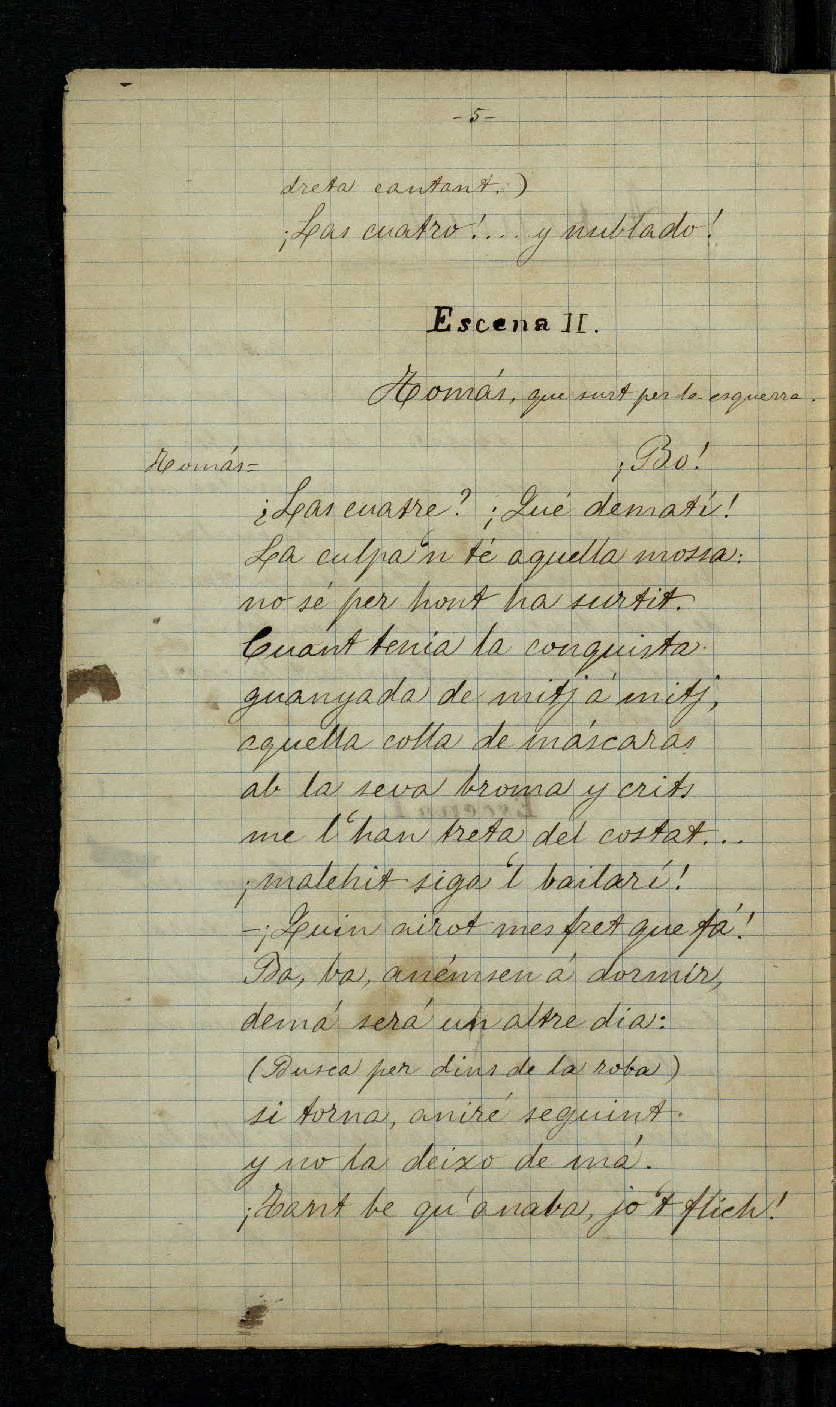 -5-
dreta cantant.)
¡Las cuatro!.... y nublado!
Escena II.
Tomás, que surt per la esquerra.
Tomás=
¡Bo!
¿Las cuatre? ¡Qué dematí!
La culpa 'n té aquella mossa:
no sé per hont ha surtit.
Cuant tenia la conquista
guanyada de mitj á mitj,
aquella colla de máscaras
ab la seva broma y crits
me l'han treta del costat...
¡malehit siga 'l bailarí!
-¡Quin airot mes fret que fá!
Ba, ba, anémsen á dormir,
demá será un altre dia:
(Busca per dins de la roba)
si torna, aniré seguint
y no la deixo de má.
¡Tant be qu'anaba, jo 't flich!